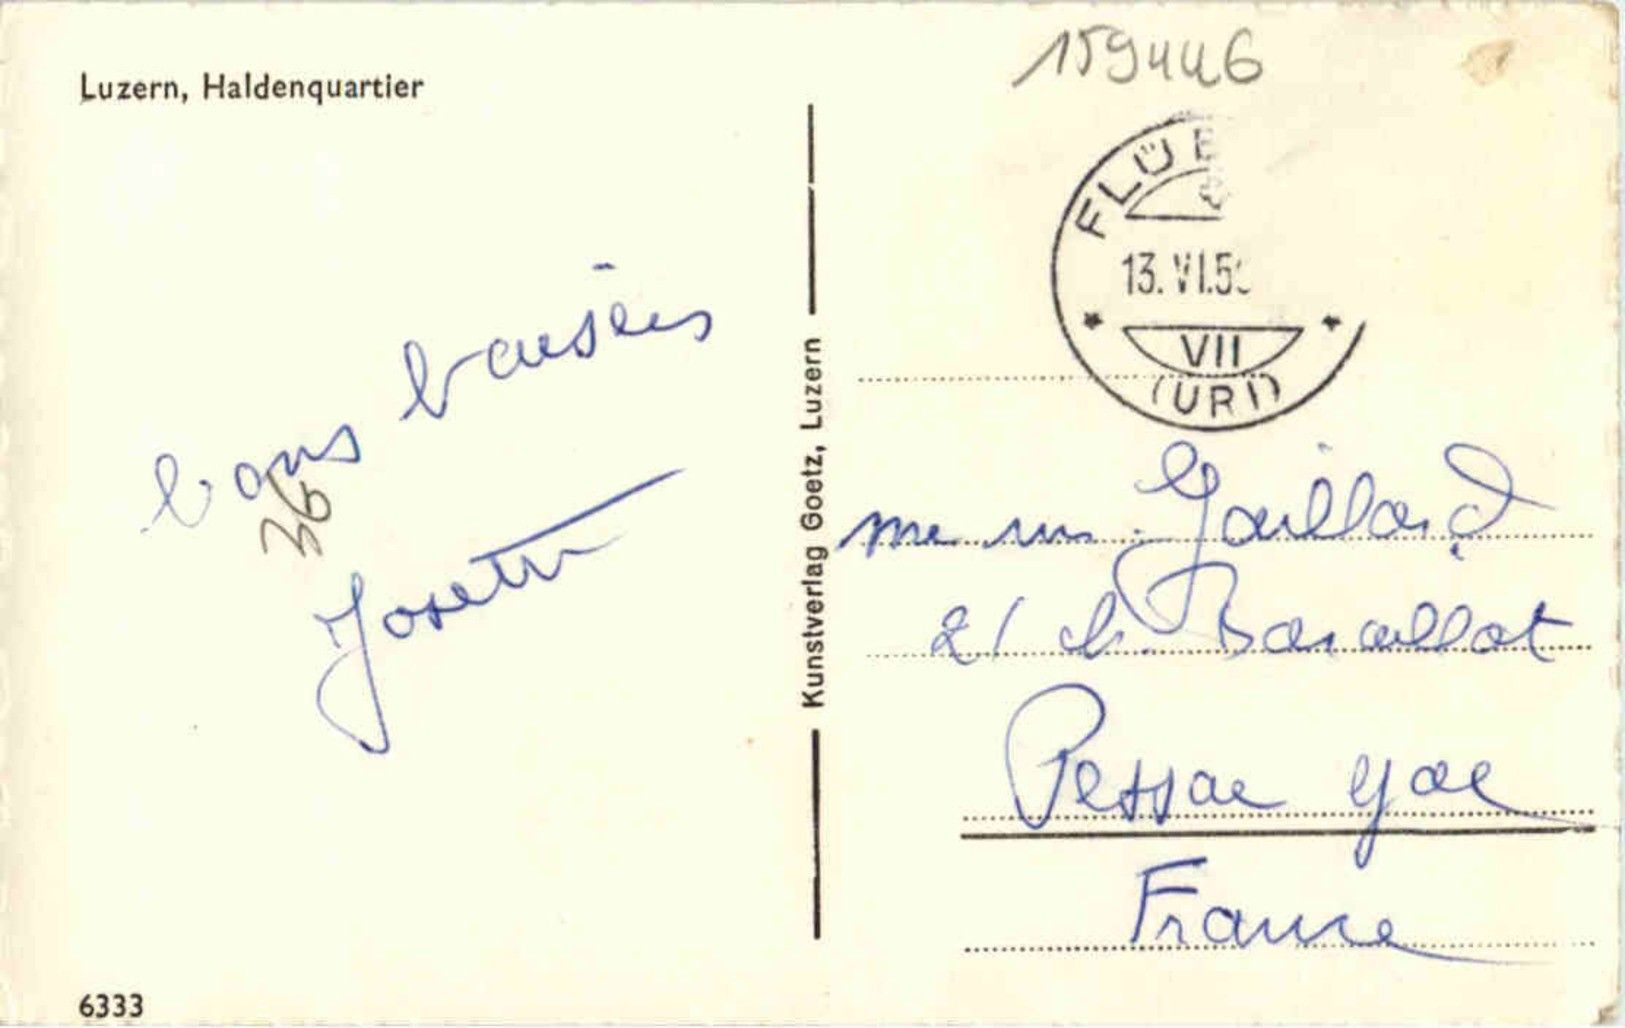 Luzern, Haldenquartier
bons baisers
36
Josette
6333
Kunstverlag Goetz, Luzern
159446
FLÜE
13. VI.5
VII
(URI)
Gaillard
21 Baraillat
Pessac
France